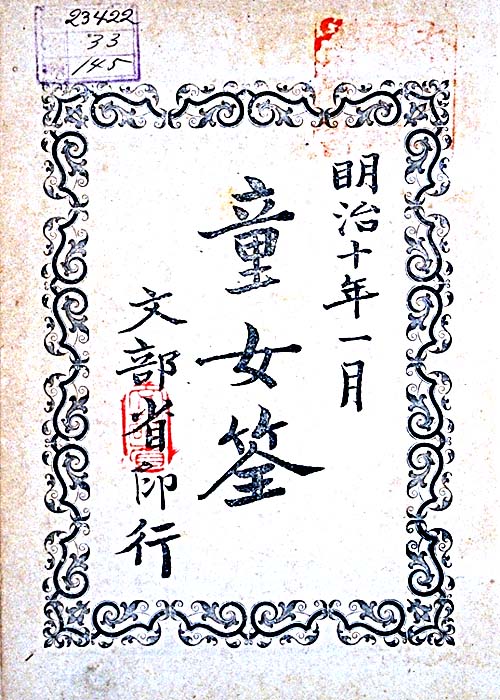 23422
33
145
明治十年一月
童女筌
文部省印行